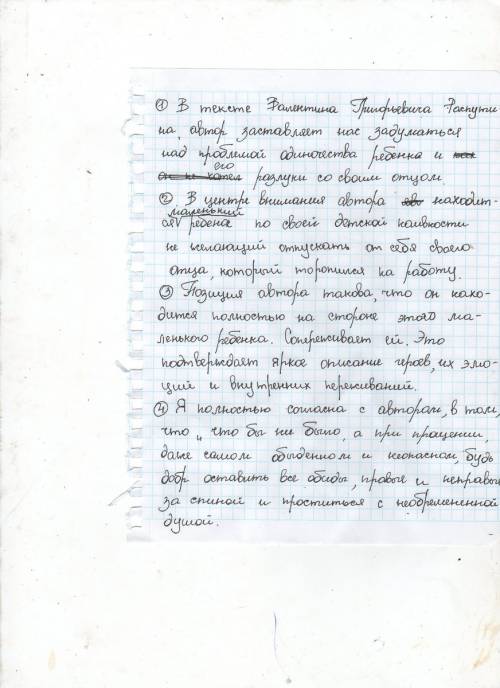 ① В тексте Валентина Григорьевича Распути-
на, автор заставляет нас задуматься
над проблемой одиночества ребенка и
его разлуки со своим отцом.
② В центре внимания автора находит-
ся маленький ребенок по своей детской наивности
не желающий отпускать от себя своего
отца, который торопился на работу.
③ Позиция автора такова, что он нахо-
дится полностью на стороне этого ма-
ленького ребенка. Сопереживает ей. Это
подтверждает яркое описание героев, их эмо-
ций и внутренних переживаний.
④ Я полностью согласна с автором, в том,
что „ что бы ни было, а при прощении,
даже самом обыденном и неопасном, будь
добр оставить все обиды, правые и неправые
за спиной и проститься с необремененной
душой.